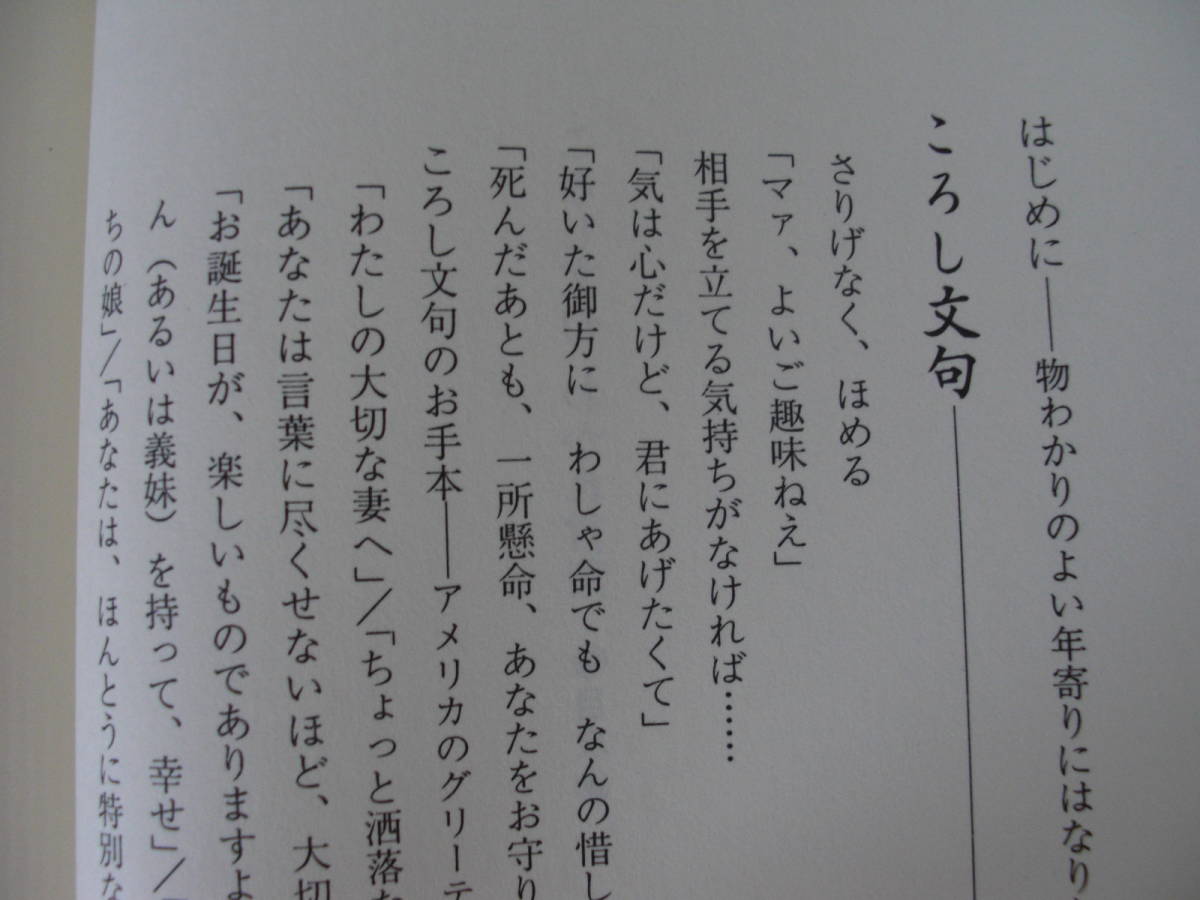 はじめに――物わかりのよい年寄りにはなり
ころし文句
さりげなく、ほめる
「マァ、よいご趣味ねえ」
相手を立てる気持ちがなければ……
「気は心だけど、君にあげたくて」
「好いた御方に　わしゃ命でも　なんの惜し
「死んだあとも、一所懸命、あなたをお守り
ころし文句のお手本――アメリカのグリーテ
「わたしの大切な妻へ」／「ちょっと洒落た
「あなたは言葉に尽くせないほど、大切
「お誕生日が、楽しいものでありますよ
ん（あるいは義妹）を持って、幸せ」／「
ちの娘」／「あなたは、ほんとうに特別な